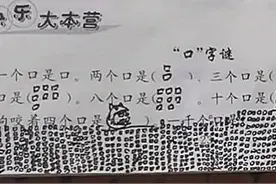 乐大本营
“口”字谜
一个口是口。两个口是(吕)、三个口是(
口是(    )。八个口是(    )。十个口是(
狗咬着四个口是(    )一千个口是